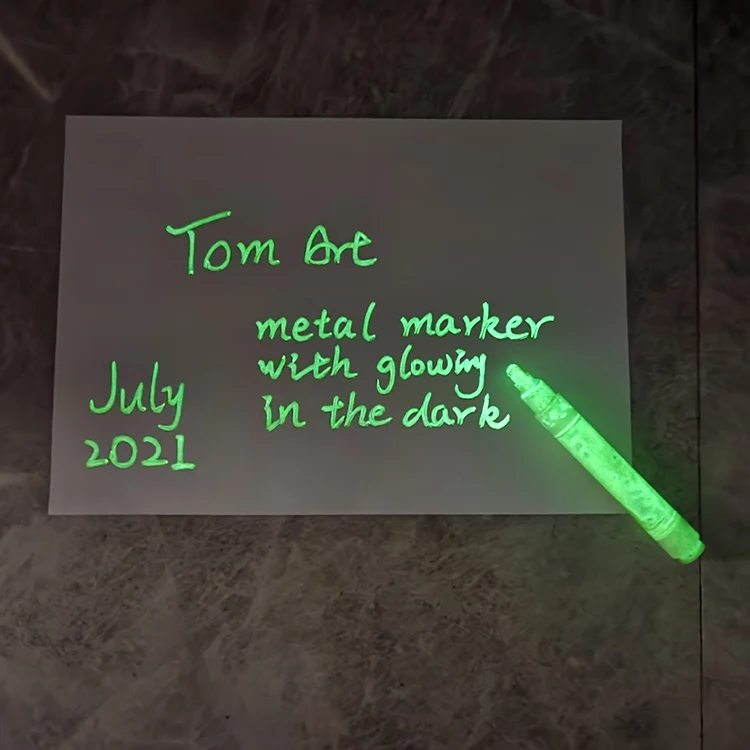 Tom Art
metal marker
with glowing
in the dark
July
2021